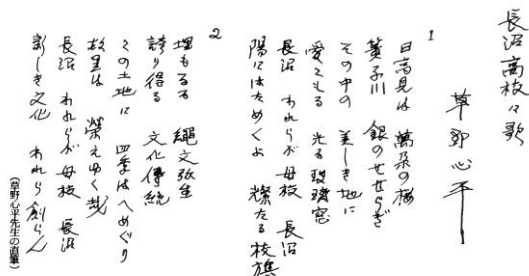 長沼高校々歌
草野心平
1
日高見は 萬朶の桜
簀子川 銀のせせらぎ
その中の 美しき地に
愛こもる 光る玻璃窓
長沼 われらが母校 長沼
陽にはためくよ 燦たる校旗
2
埋もるる 縄文弥生
誇り得る 文化傳統
この土地に 四季はへめぐり
故里は 栄えゆく哉
長沼 われらが母校 長沼
新しき文化 われら創らん
(草野心平先生の直筆)